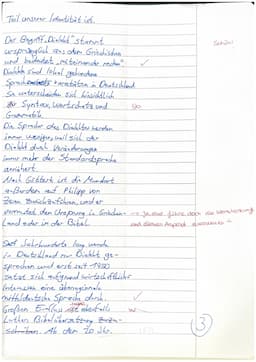 Teil unserer Identität ist.
Der Begriff „Dialekt" stammt
ursprünglich aus dem Griechischen
und bedeutet „miteinander reden"
Dialekte sind lokal gebundene
Sprach varietäten in Deutschland
So unterscheiden sich hinsichtlich
der Syntax, Wortschatz und
Grammatik.
Die Sprache des Dialektes werden
immer weniger, weil sich der
Dialekt durch Veränderungen
immer mehr der Standardsprache
annähert.
Nach ist die Mundart
außerdem auf Philipp von
Zesen zurückzuführen, und er
vermutet den Ursprung in Griechen-
land oder in der Bibel.
Seit Jahrhunderte lang wurde
in Deutschland nur Dialekt ge-
sprochen und erst seit
setzte sich aufgrund wirtschaftlicher
Interessen eine überregionale
mitteldeutsche Sprache durch.
Großen Einfluss ebenfalls
Luthers Bibelübersetzung
Ab den 70 Jhr.
3